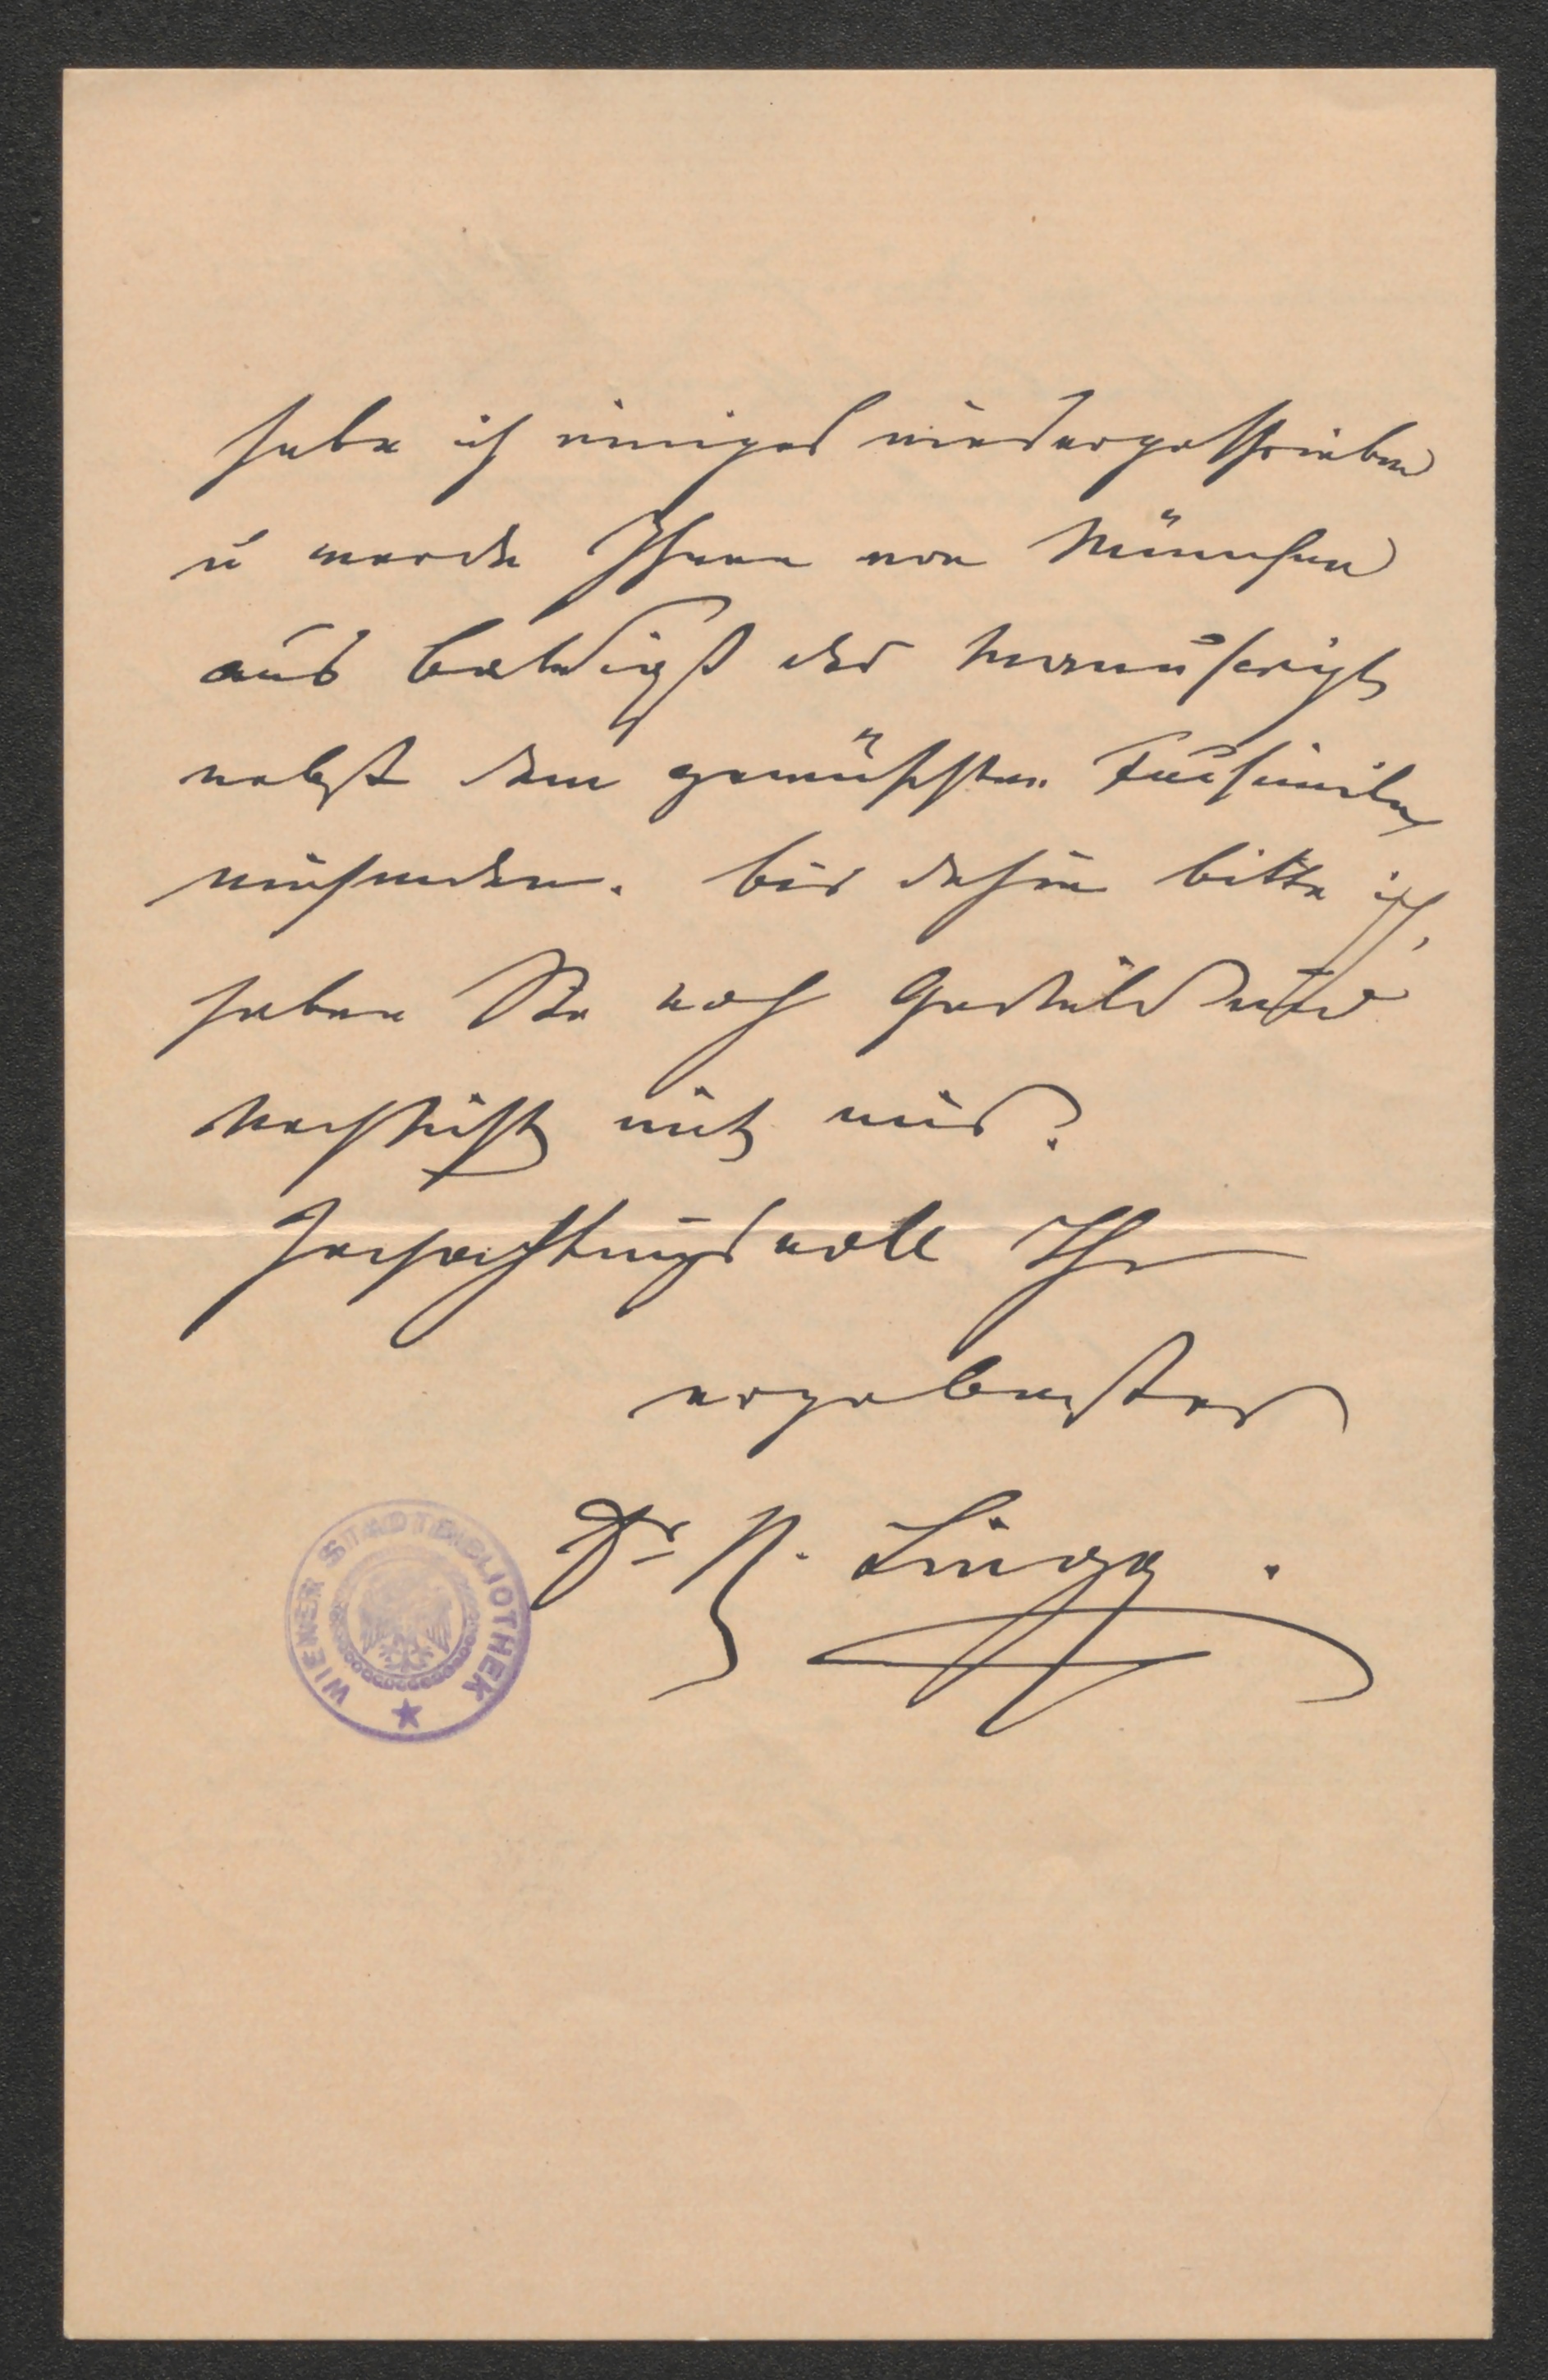 habe ich einiges niedergeschrieben
u werde Ihnen von München
aus baldigst das Manuscript
nebst dem gewünschten Facsimile
einsenden. bis dahin bitte ich,
haben Sie noch Geduld und
Nachsicht mit mir?
Hochachtungsvoll Ihr
ergebenster
Dr H. Lingg.
WIENER STADTBIBLIOTHEK